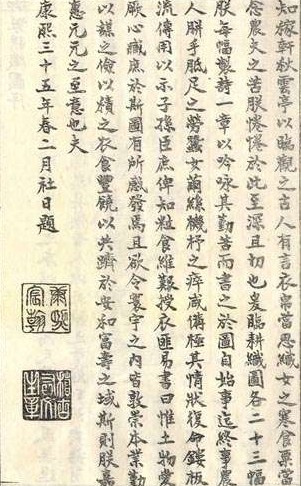 知稼軒秋雲亭以臨觀之古人有言衣帛當思織女之寒食粟當
念農夫之苦朕惓惓於此至深且切也爰繪耕織圖各二十三幅
朕每幅製詩一章以吟詠其勤苦而書之於圖自始事迄終事農
人胼手胝足之勞蠶女繭絲機杼之瘁咸備極其情狀復命鏤板
流傳用以示子孫臣庶俾知粒食維艱授衣匪易書曰惟土物愛
厥心臧庶於斯圖有所感發焉且欲令寰宇之內皆敦崇本業勤
以謀之儉以積之衣食豐饒以共躋於安和富壽之域斯則朕嘉
惠元元之至意也夫
康熙三十五年春二月社日題
康熙宸翰
稽古右文之章